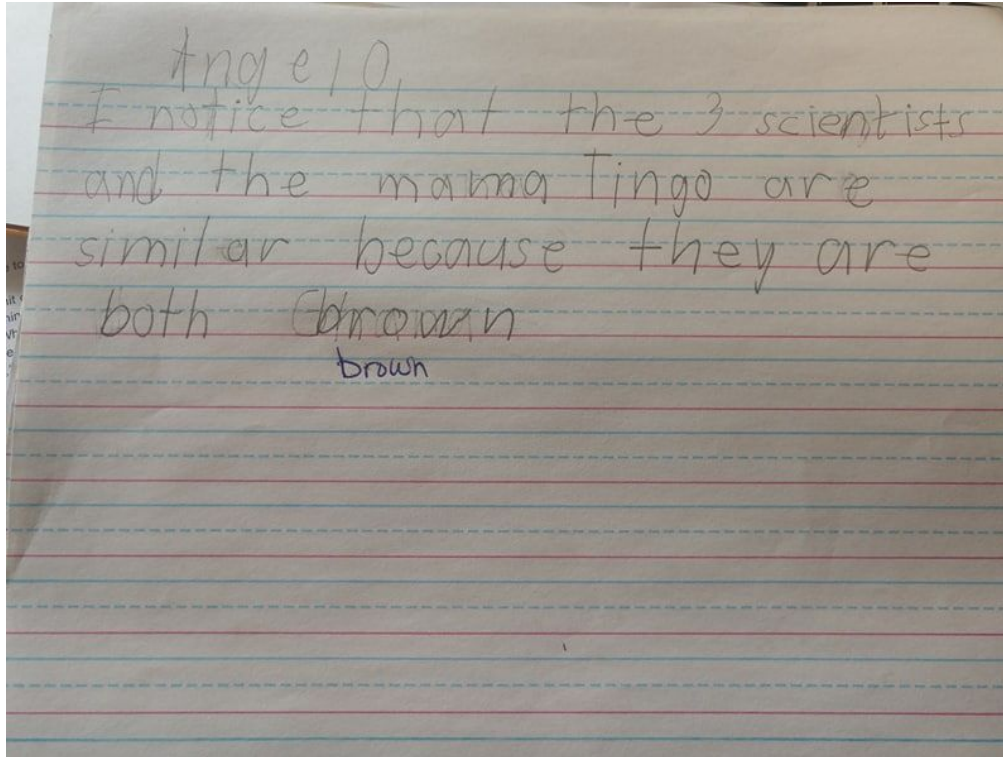 Angelo
I notice that the 3 scientists
and the mama Tingo are
similar because they are
both brown
brown